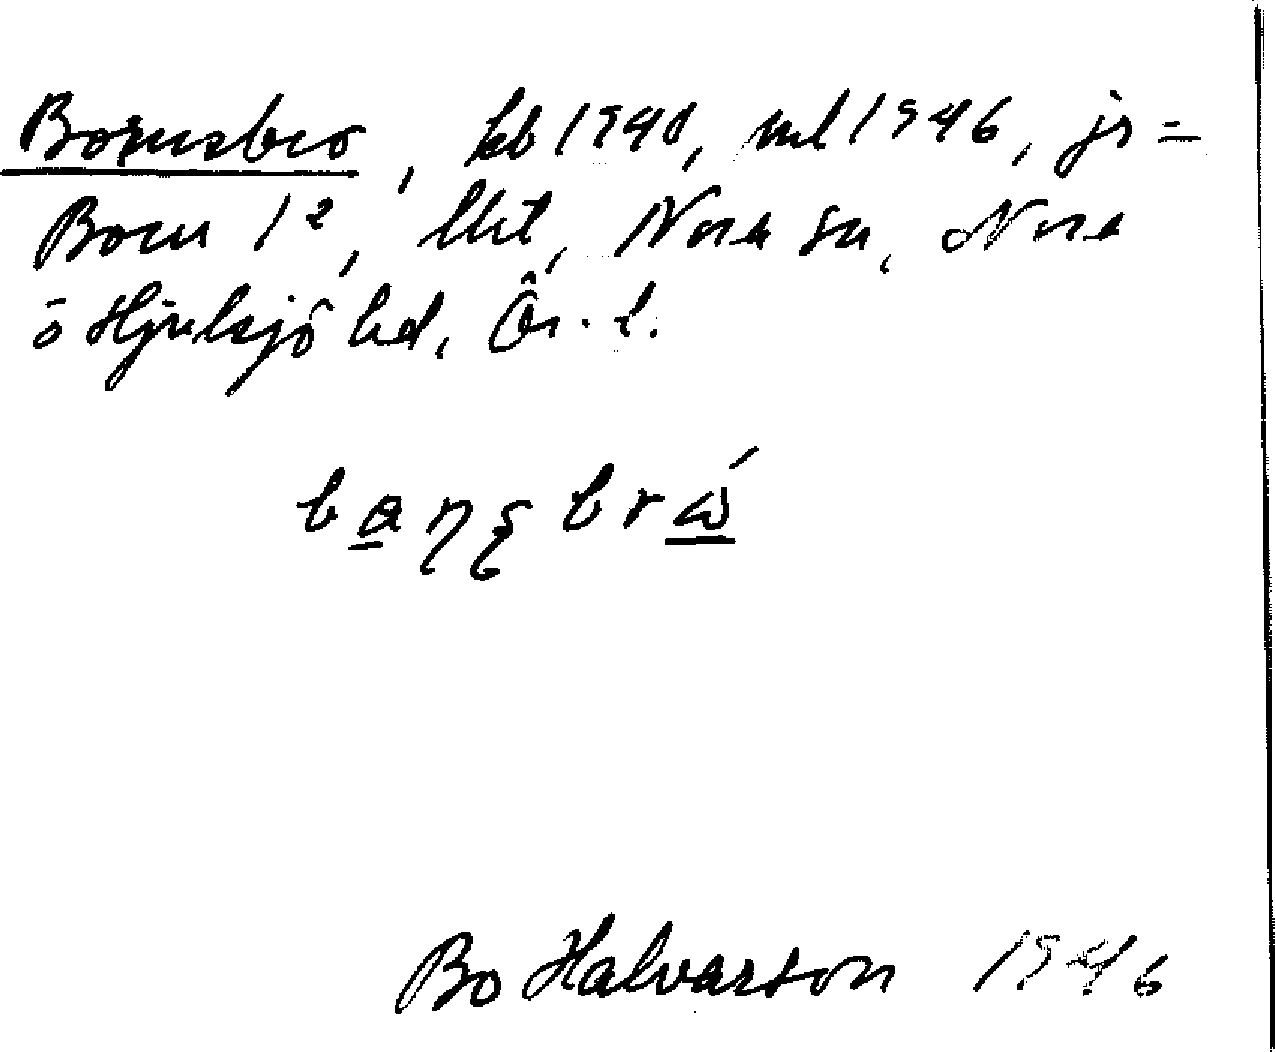 Bornsbro, kb 1940, ml 1946, jr =
Born 1², lht, Nora sn, Nora
o Hjulsjö hd, Ör. l.
Bo Halvarson 1946